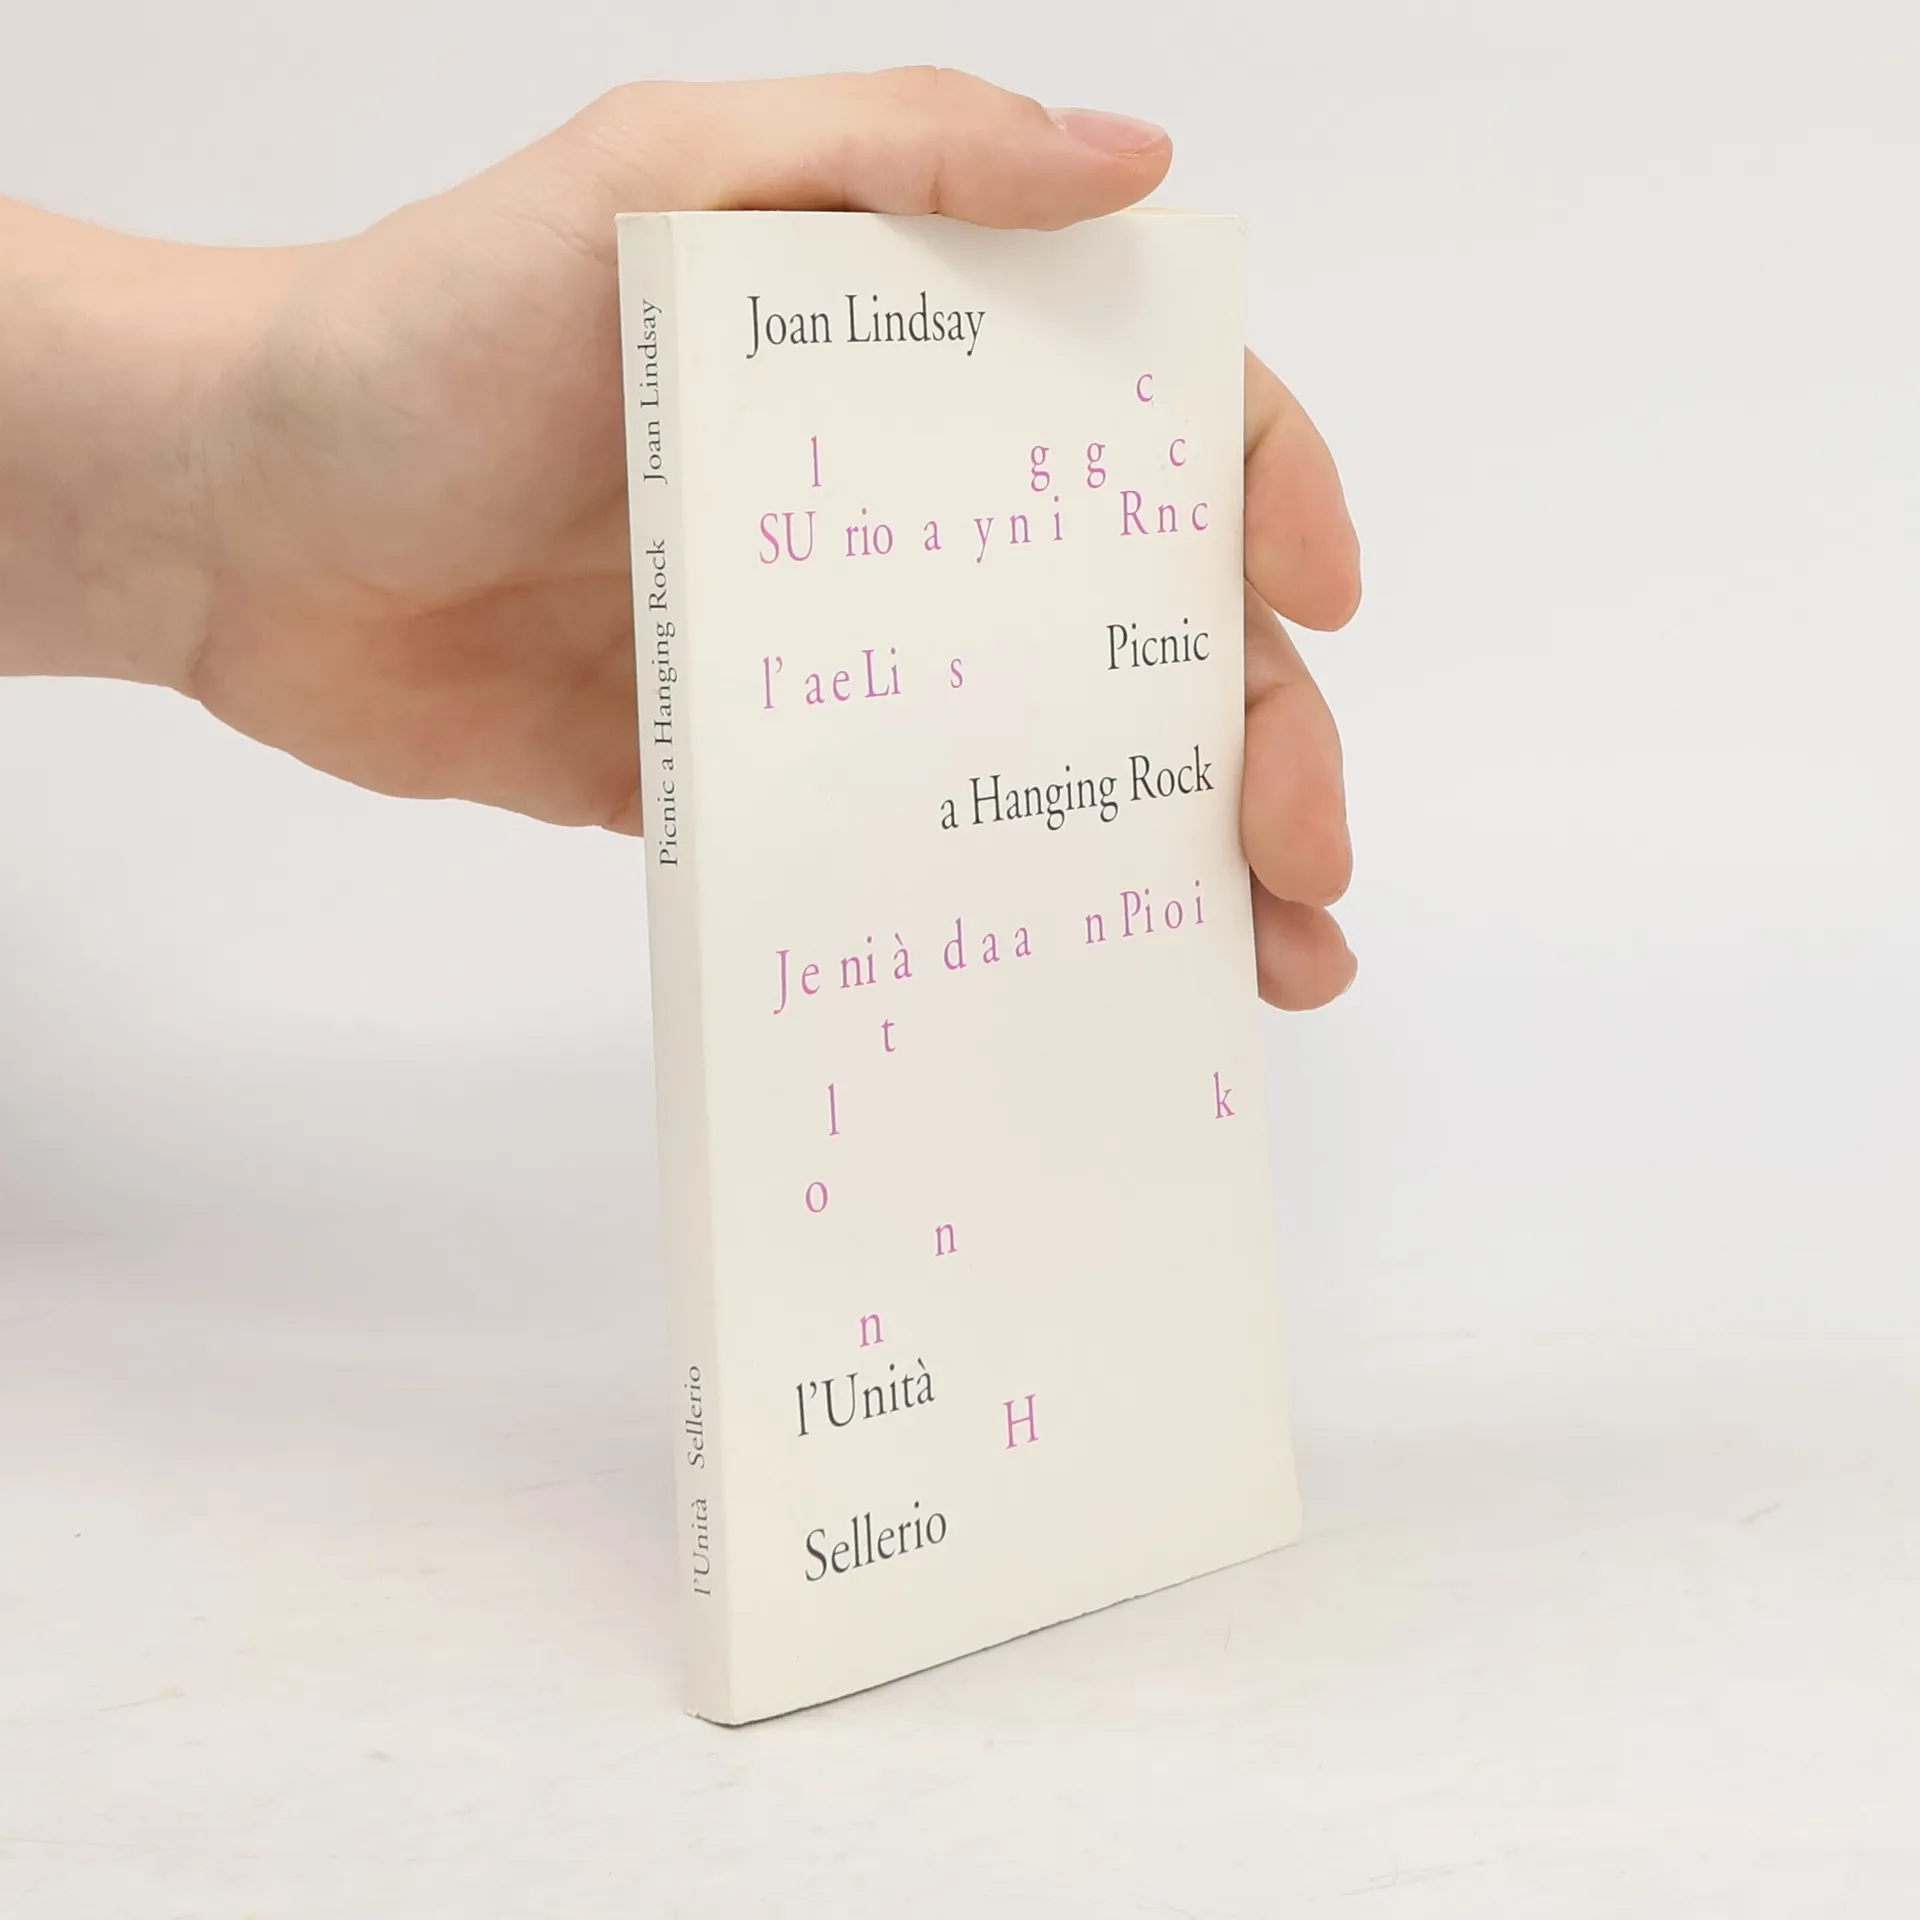 Joan Lindsay
c
l g g c
SU rio a y n i R n c
Picnic
l' a e Li s
a Hanging Rock
J e ni à d a a n Pi o i
t
l k
o
n
n
l'Unità
H
Sellerio
Joan Lindsay
Picnic a Hanging Rock
l'Unità Sellerio